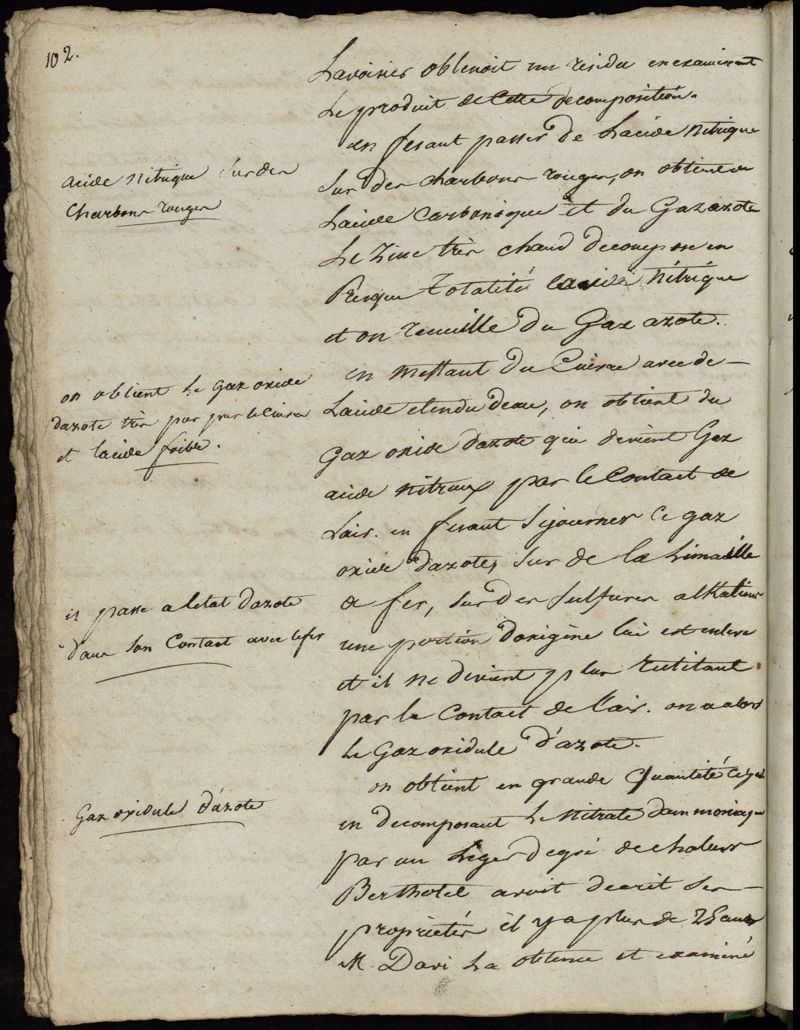 102.
Lavoisier obtenoit un residu en examinant
Le produit de Cette decomposition.
en fesant passer de Lacide Nitrique
acide Nitrique sur des
Charbons rouges
Sur des charbons rouges, on obtient
Lacide Carbonique et du Gaz azote
Le Zinc très chaud decompose en
Presque Totalité Lacide Nitrique
et on recueille du Gaz azote.
en mettant du Cuivre avec de
on obtient Le gaz oxide
dazote très pur par le Cuivre
et lacide foible.
Lacide etendu deau, on obtient du
Gaz oxide dazote qui devient Gaz
acide nitreux par le Contact de
Lair. en fesant Sejourner Ce gaz
oxide d'azote, sur de la Limaille
de fer, sur des Sulfures alkalins
il passe a letat dazote
dans son Contact avec le fer
une portion doxigène lui est enlevé
et il ne devient plus rutilant
par le Contact de l'air. on a alors
Le Gaz oxidule d'azote.
on obtient en grande Quantité Ce gaz
Gaz oxidule d'azote
en decomposant Le Nitrate dammoniaque
par un Leger degré de chaleur
Berthotel avoit decrit Ses
proprietés il y a plus de 25 ans
M. Davi La obtenu et examiné